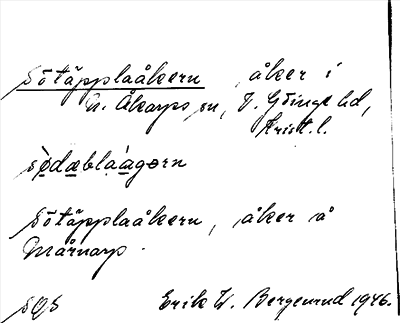 Sötäpplaåkern, åker i
N. Åkarps sn, V. Göinge hd,
Krist. l.
sø̀dæbla̍agorn
Sötäpplaåkern, åker å
Mårnarp.
SOS Erik W. Bergenrud 1946.